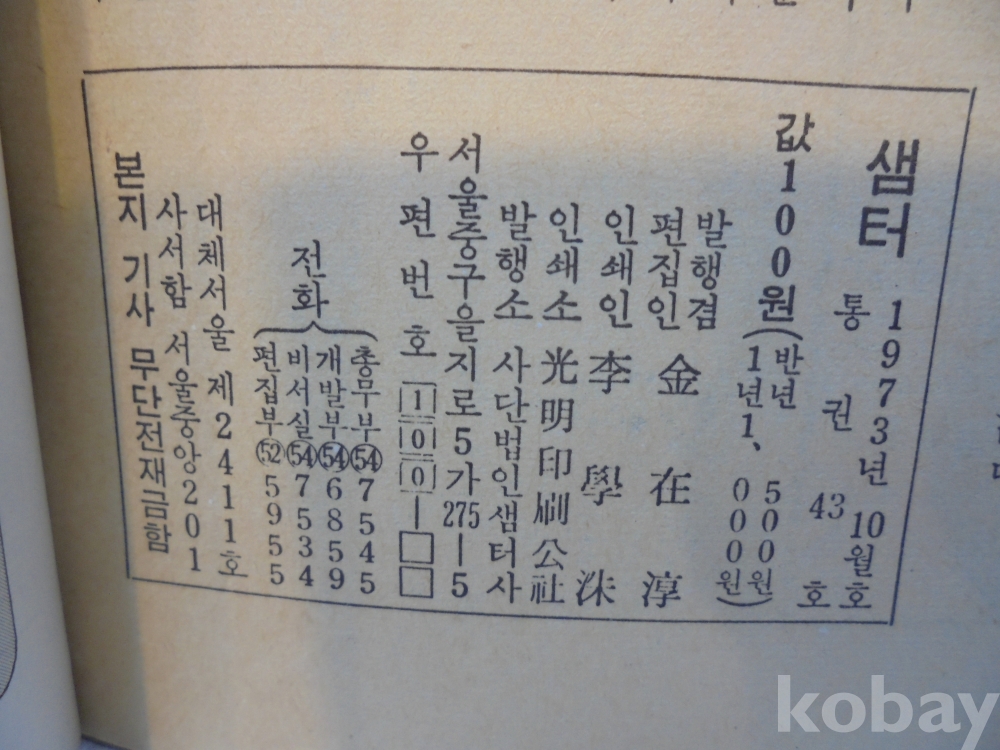 샘터 1973년 10월호
통권 43호
값 100원 (반년 500원
1년 1,000원)
발행겸
편집인 金在淳
인쇄인 李學洙
인쇄소 光明印刷公社
발행소 사단법인 샘터사
서울중구을지로5가 275—5
우편번호 100—□□
전화
총무부 54 7545
개발부 54 6859
비서실 54 7534
편집부 52 5955
대체서울 제2411호
사서함 서울중앙201
본지 기사 무단전재금함
kobay